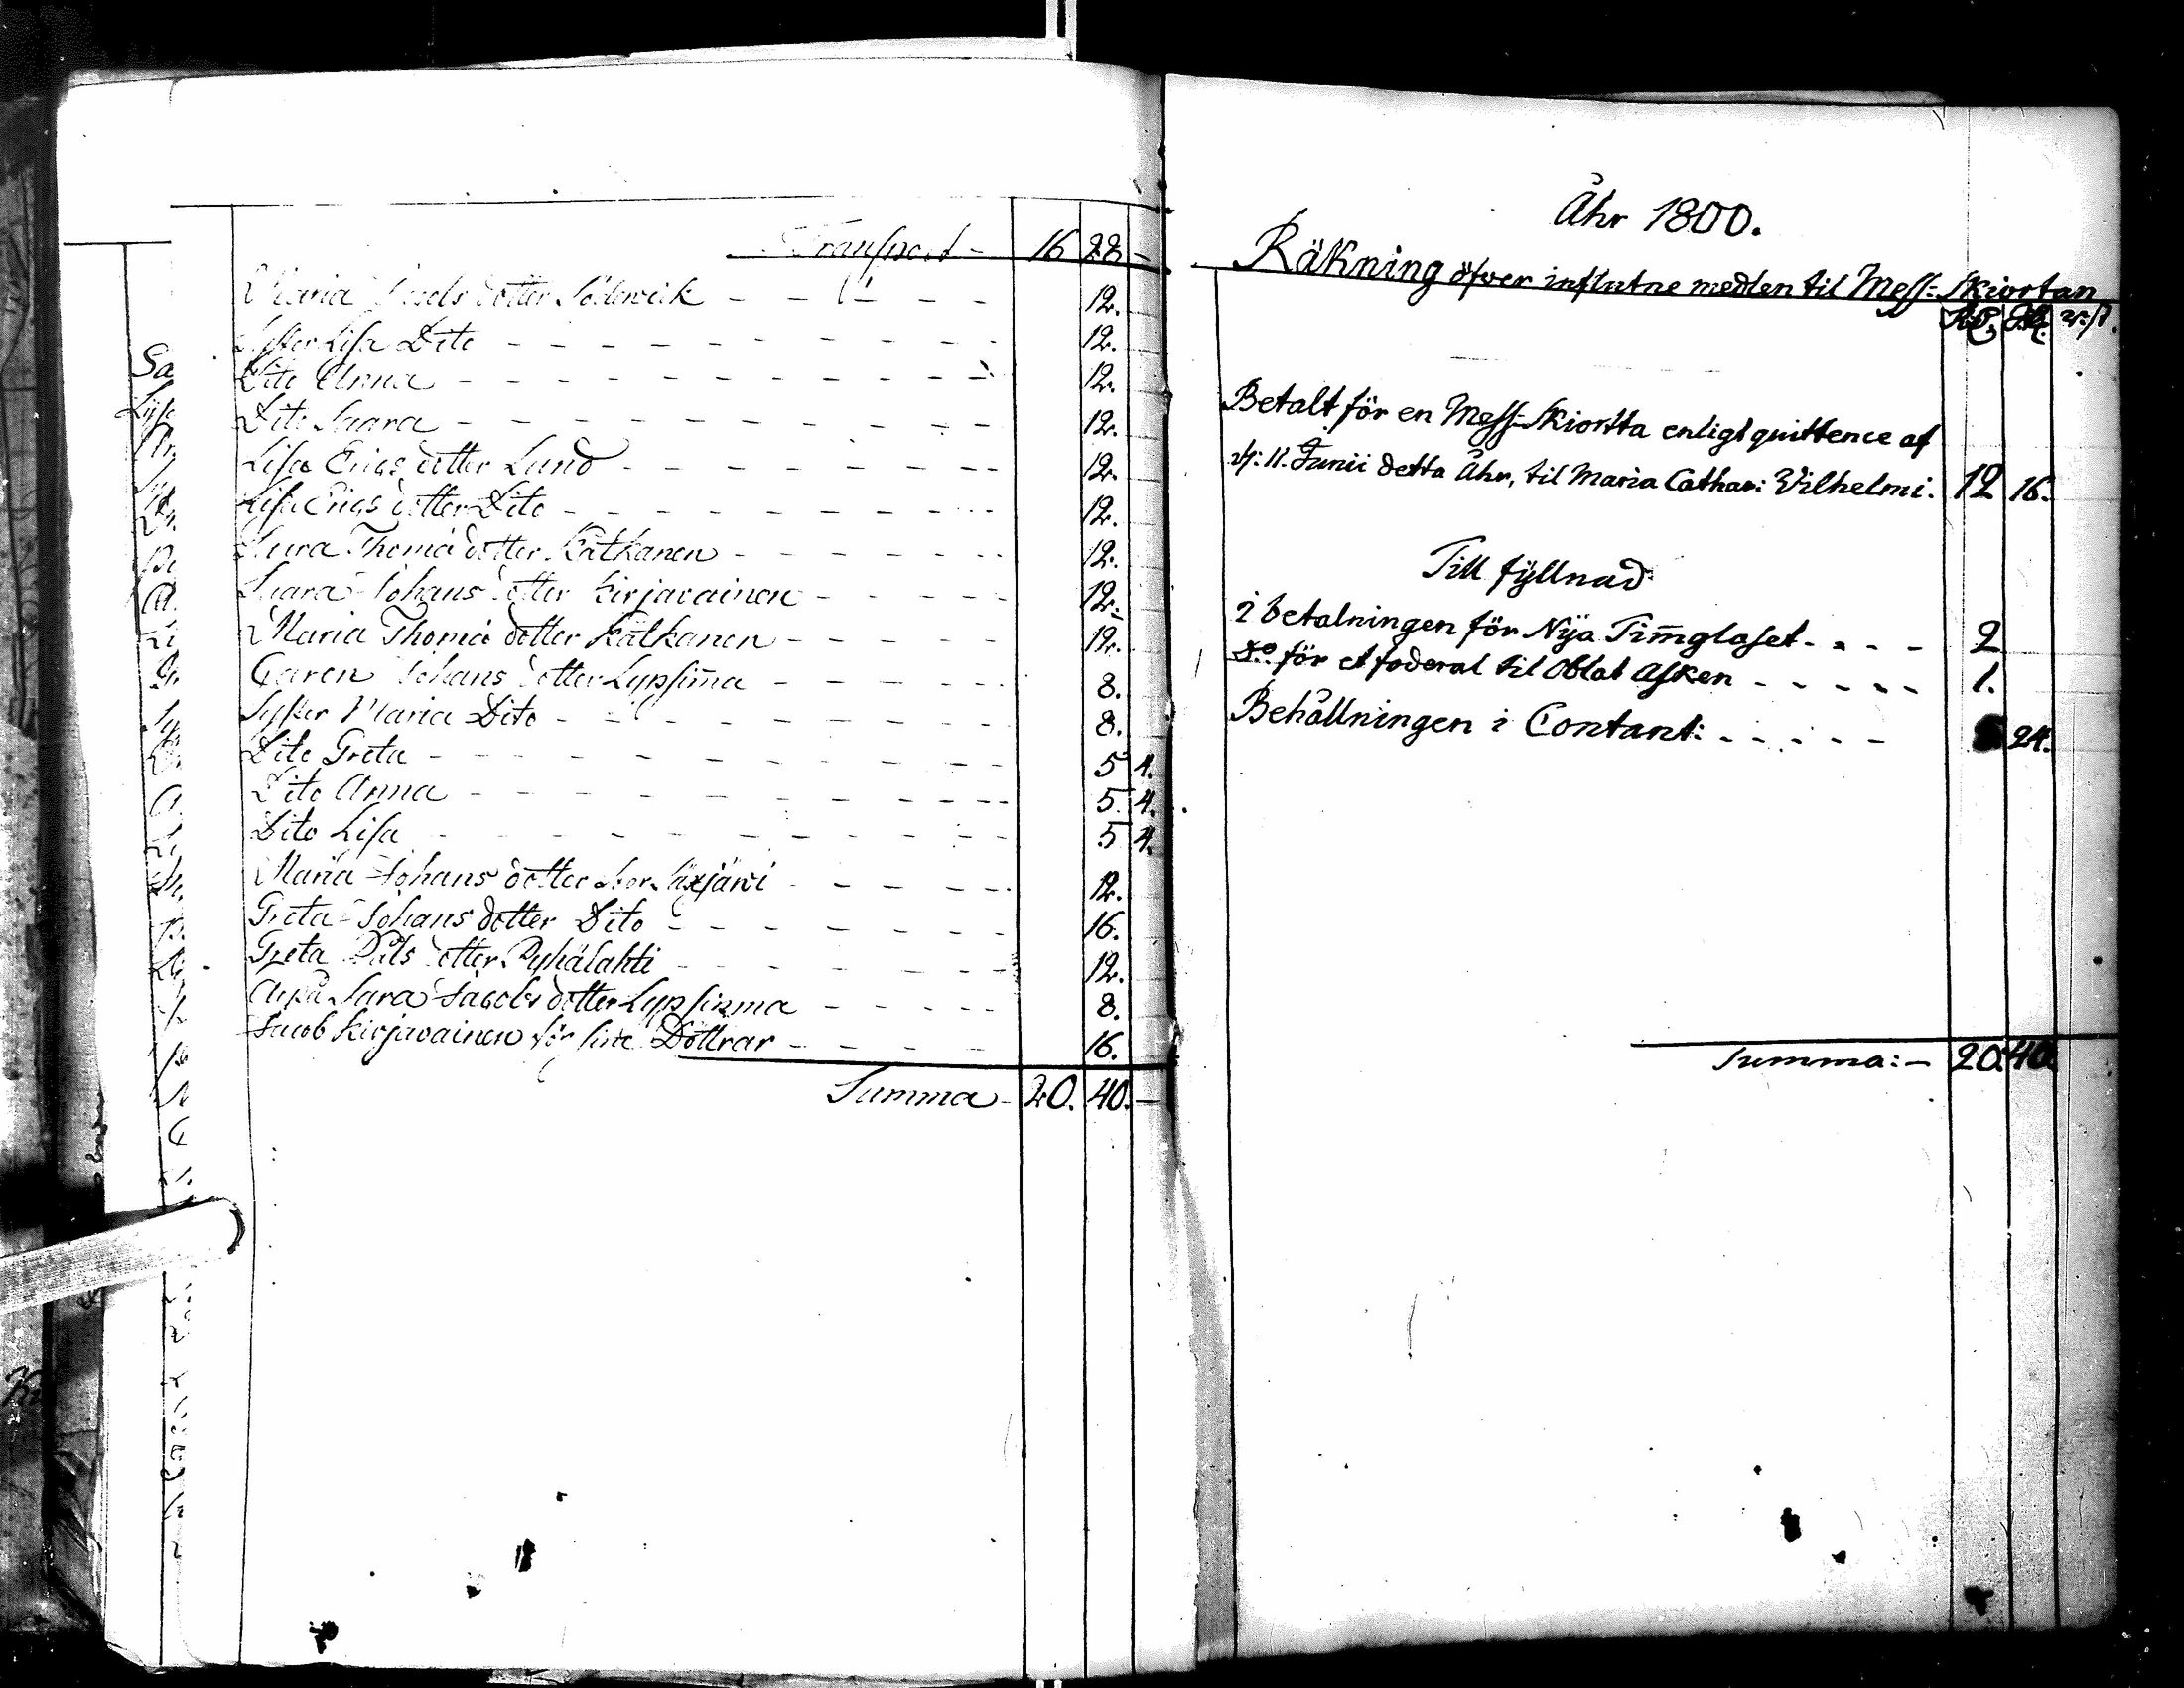 Transport - 16 28 -
Maria dotter Söderwik - - - - 12.
Syster Lisa Dito - - - - 12.
Dito Anna - - - - 12.
Dito Saara - - - - 12.
Lisa Erics dotter Lund - - - - 12.
Lisa Erics dotter Dito - - - - 12.
Thomæ dotter Kätkänen - - - - 12.
Saara Johans dotter Kirjavainen - - - - 12.
Maria Thomæ dotter Kätkänen - - - - 12.
Caren Johans dotter Lypsim̄a - - - - 8.
Syster Maria Dito - - - - 8.
Dito Greta - - - - 5 4.
Dito Anna - - - - 5. 4.
Dito Lisa - - - - 5 4.
Maria Johans dotter - - - - 12.
Greta Johans dotter Dito - - - - 16.
Greta Påls dotter Pyhälahti - - - - 12.
Sara Jacobs dotter Lypsinma - - - - 8.
Jacob Kirjavainen för sine Döttrar - - - - 16.
Summa - 20. 40. -
Åhr 1800.
Räkning öfver influtne medlen til Mess-Skiortan
Betalt för en Mess-Skiortta enligt quittence af
d: 11. Junii detta Åhr, til Maria Cathar: Wilhelmi. 12 16.
Till fyllnad
i betalningen för Nÿa Tim̄glaset - - - - 2
do för et foderal til Oblat Asken - - - - 1.
Behållningen i Contant: - - - - 24.
Summa: - 20. 40.